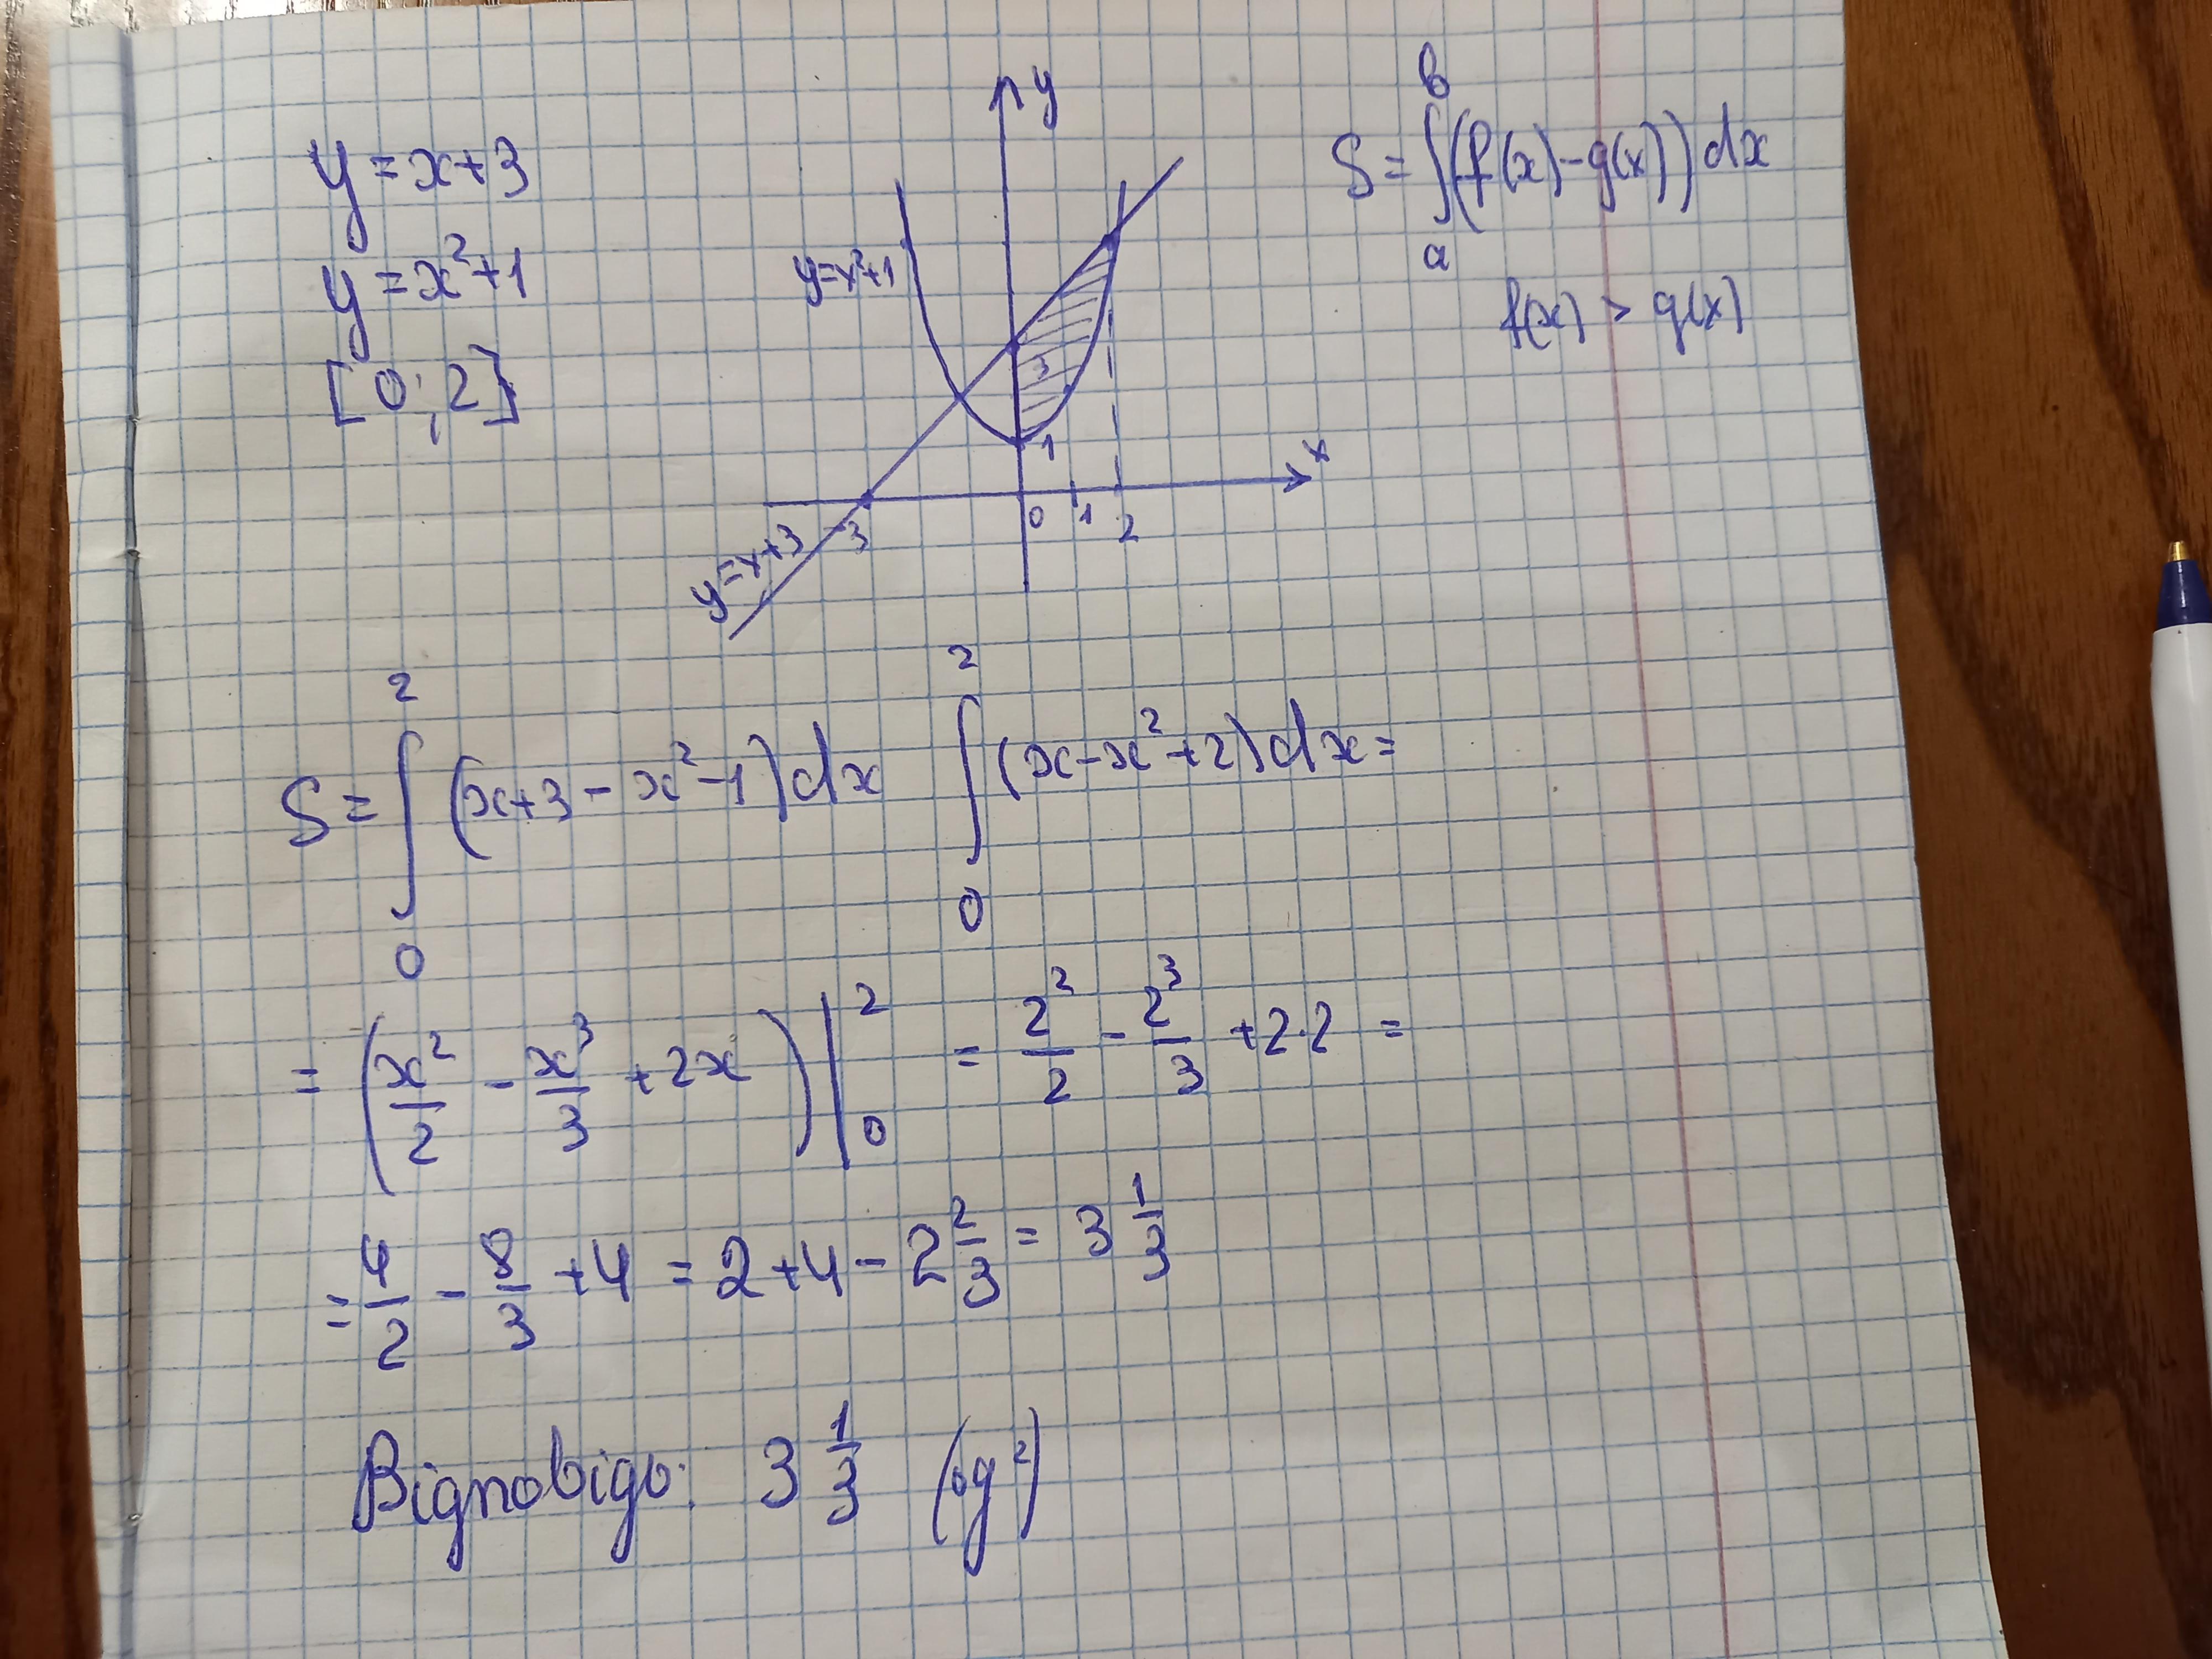 y = x+3
y = x²+1
[0; 2]
y
y=x²+1
3
1
x
-3
0 1 2
y=x+3
b
S = ∫(f(x)-g(x))dx
a
f(x) > g(x)
2 2
S = ∫ (x+3-x²-1)dx ∫ (x-x²+2)dx =
0 0
= (x²/2 - x³/3 + 2x) |₀² = 2²/2 - 2³/3 + 2·2 =
= 4/2 - 8/3 + 4 = 2+4-2 2/3 = 3 1/3
Відповідь: 3 1/3 (од²)